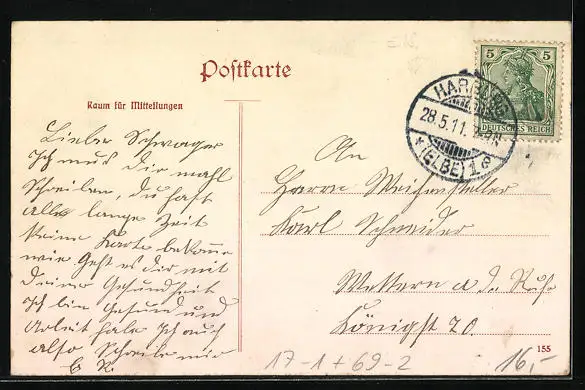 Postkarte
Raum für Mitteilungen
Lieber Schwager
Ich mus dir mahl
Schreiben, du hast
alle lange Zeit
keine Karte bekomm
wie Geht es dir mit
deiner Gesundheit
Ich bin Gesund und
Arbeit habe Ich auch
also Schreibe mir
An
Herrn Weichensteller
Karl Schneider
Wettern a. d. Ruhr
Königst 20.
5 5
DEUTSCHES REICH
HARBURG
28.5.11.
*(ELBE) 1
155
17-1+69-2
16,-